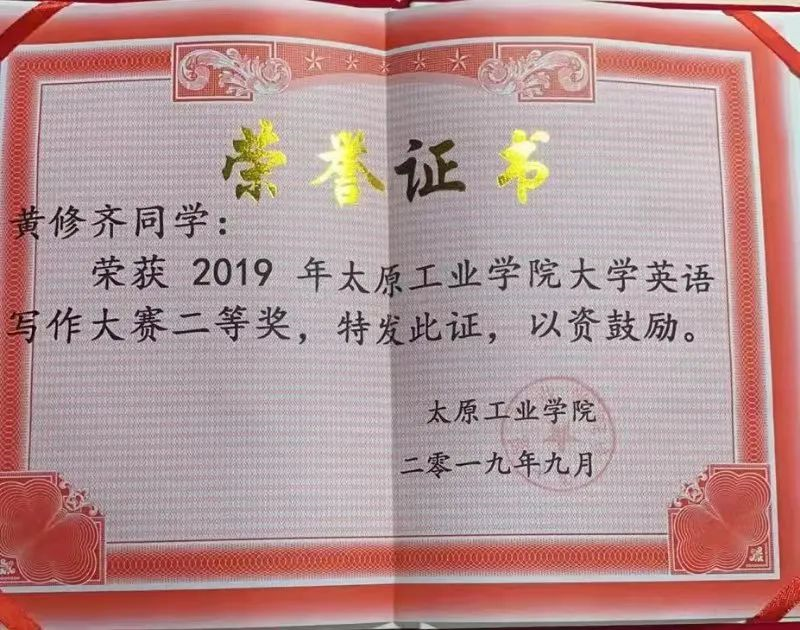 荣誉证书
黄修齐同学：
荣获 2019 年太原工业学院大学英语
写作大赛二等奖，特发此证，以资鼓励。
太原工业学院
二零一九年九月